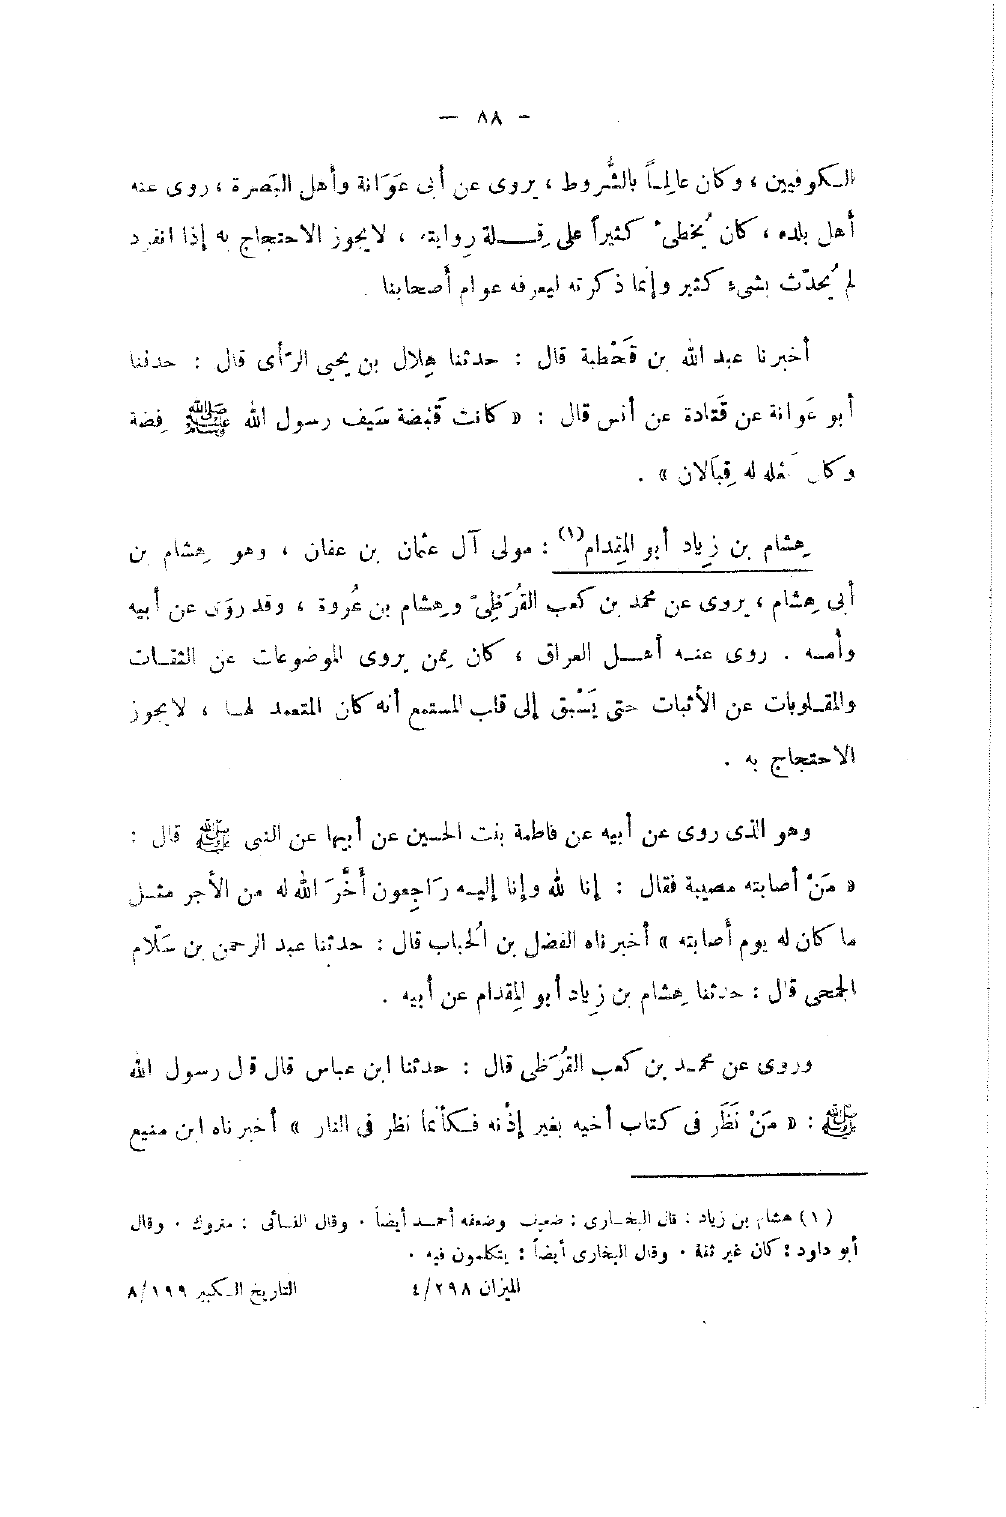 — ٨٨ —
الكوفيين ، وكان عالِماً بالشُّروط ، يروى عن أبى عَوَانة وأهل البَصرة ، روى عنه
أهل بلده ، كان يُخطىء كثيراً على قِلة رِوايته ، لايجوز الاحتجاج به إذا انفرد
لم يُحدّث بشىء كثير وإنما ذكرته ليعرفه عوام أصحابنا .
أخبرنا عبد الله بن قَحْطبة قال : حدثنا هِلال بن يحيى الرّأى قال : حدثنا
أبو عَوانة عن قَتادة عن أنس قال : « كانت قَبْضة سَيف رسول الله ﷺ فِضة
وكان نعله له قِبَالان » .
هِشام بن زِياد أبو المِقدام(١) : مولى آل عثمان بن عفان ، وهو هِشام بن
أبى هِشام ، يروى عن محمد بن كعب القُرَظِىّ وهِشام بن عُروة ، وقد روَى عن أبيه
وأُمه . روى عنه أهل العراق ، كان ممن يروى الموضوعات عن الثقات
والمقلوبات عن الأثبات حتى يَسْبق إلى قلب المستمع أنه كان المتعمد لها ، لايجوز
الاحتجاج به .
وهو الذى روى عن أبيه عن فاطمة بنت الحسين عن أبيها عن النبى ﷺ قال :
« مَنْ أصابته مصيبة فقال : إنا لله وإنا إليه رَاجِعون أَخَّرَ الله له من الأجر مثل
ما كان له يوم أَصابته » أخبرناه الفضل بن الُحباب قال : حدثنا عبد الرحمن بن سَلّام
الجمحى قال : حدثنا هِشام بن زِياد أبو المِقدام عن أبيه .
وروى عن محمد بن كعب القُرَظى قال : حدثنا ابن عباس قال قال رسول الله
ﷺ : « مَنْ نَظَر فى كتاب أخيه بغير إذْنه فكأنما نظر فى النار » أخبرناه ابن منيع
(١) هشام بن زياد : قال البخارى : ضعيف وضعفه أحمد أيضاً . وقال النسائى : متروك . وقال
أبو داود : كان غير ثقة . وقال البخارى أيضاً : يتكلمون فيه .
الميزان ٤/٢٩٨ التاريخ الكبير ٨/١٩٩